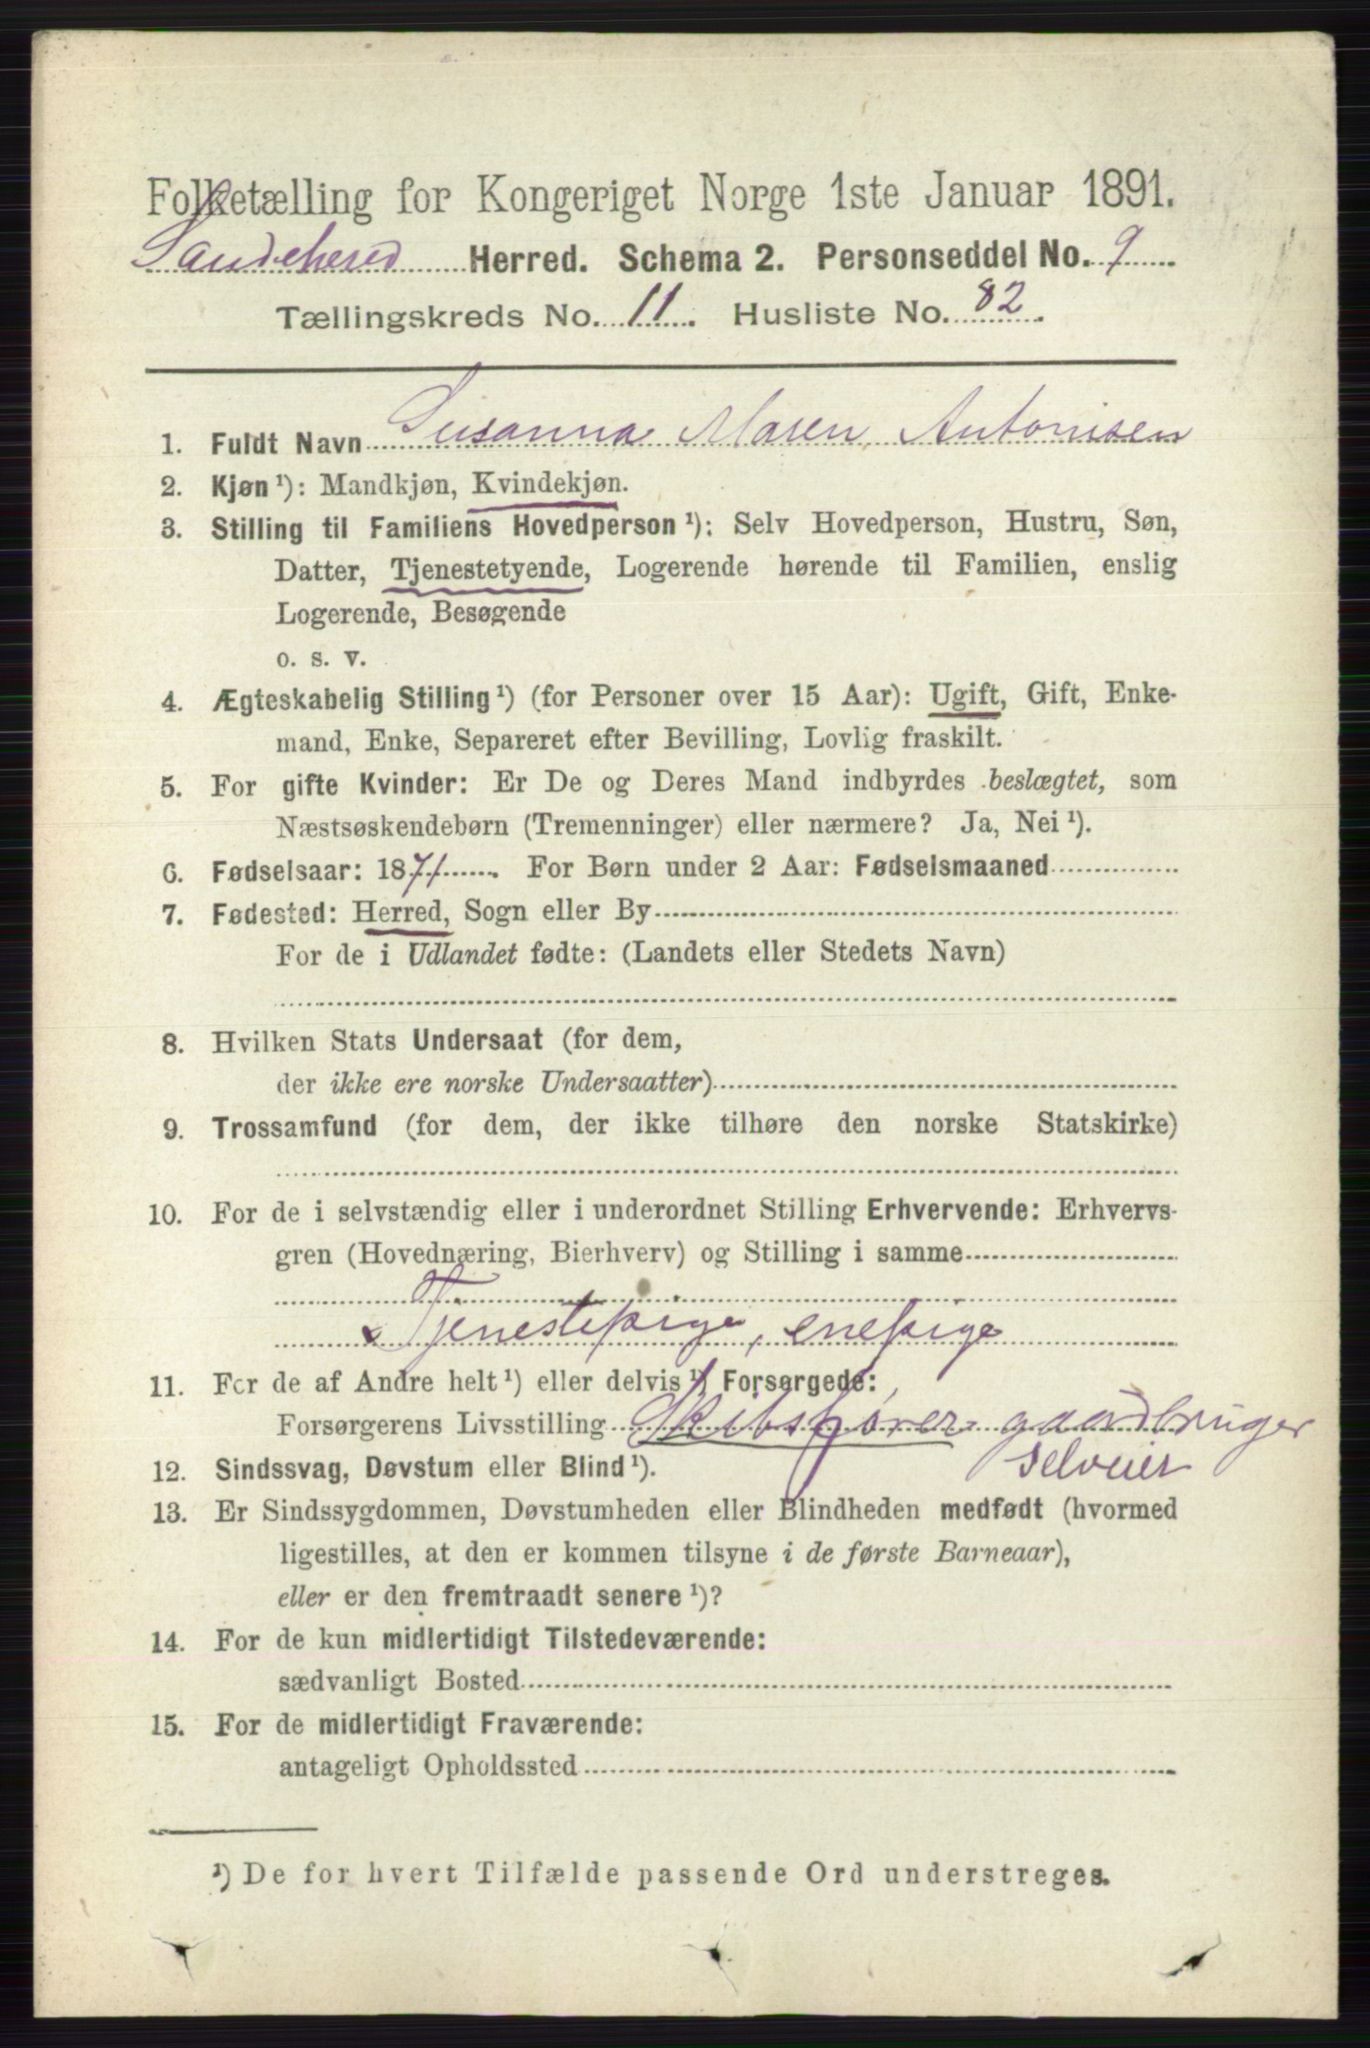 Folketælling for Kongeriget Norge 1ste Januar 1891.
Sandeherred Herred. Schema 2. Personseddel No. 9
Tællingskreds No. 11. Husliste No. 82.
1. Fuldt Navn Susanna Maren Antonisen
2. Kjøn ¹): Mandkjøn, Kvindekjøn.
3. Stilling til Familiens Hovedperson ¹): Selv Hovedperson, Hustru, Søn,
Datter, Tjenestetyende, Logerende hørende til Familien, enslig
Logerende, Besøgende
o. s. v.
4. Ægteskabelig Stilling ¹) (for Personer over 15 Aar): Ugift, Gift, Enke-
mand, Enke, Separeret efter Bevilling, Lovlig fraskilt.
5. For gifte Kvinder: Er De og Deres Mand indbyrdes beslægtet, som
Næstsøskendebørn (Tremenninger) eller nærmere? Ja, Nei ¹).
6. Fødselsaar: 1871. For Børn under 2 Aar: Fødselsmaaned
7. Fødested: Herred, Sogn eller By
For de i Udlandet fødte: (Landets eller Stedets Navn)
8. Hvilken Stats Undersaat (for dem,
der ikke ere norske Undersaatter)
9. Trossamfund (for dem, der ikke tilhøre den norske Statskirke)
10. For de i selvstændig eller i underordnet Stilling Erhvervende: Erhvervs-
gren (Hovednæring, Bierhverv) og Stilling i samme
Tjenestepige, enepige
11. For de af Andre helt ¹) eller delvis ¹) Forsørgede:
Forsørgerens Livsstilling Skibsfører gaardbruger
selveier
12. Sindssvag, Døvstum eller Blind ¹).
13. Er Sindssygdommen, Døvstumheden eller Blindheden medfødt (hvormed
ligestilles, at den er kommen tilsyne i de første Barneaar),
eller er den fremtraadt senere ¹)?
14. For de kun midlertidigt Tilstedeværende:
sædvanligt Bosted
15. For de midlertidigt Fraværende:
antageligt Opholdssted
¹) De for hvert Tilfælde passende Ord understreges.